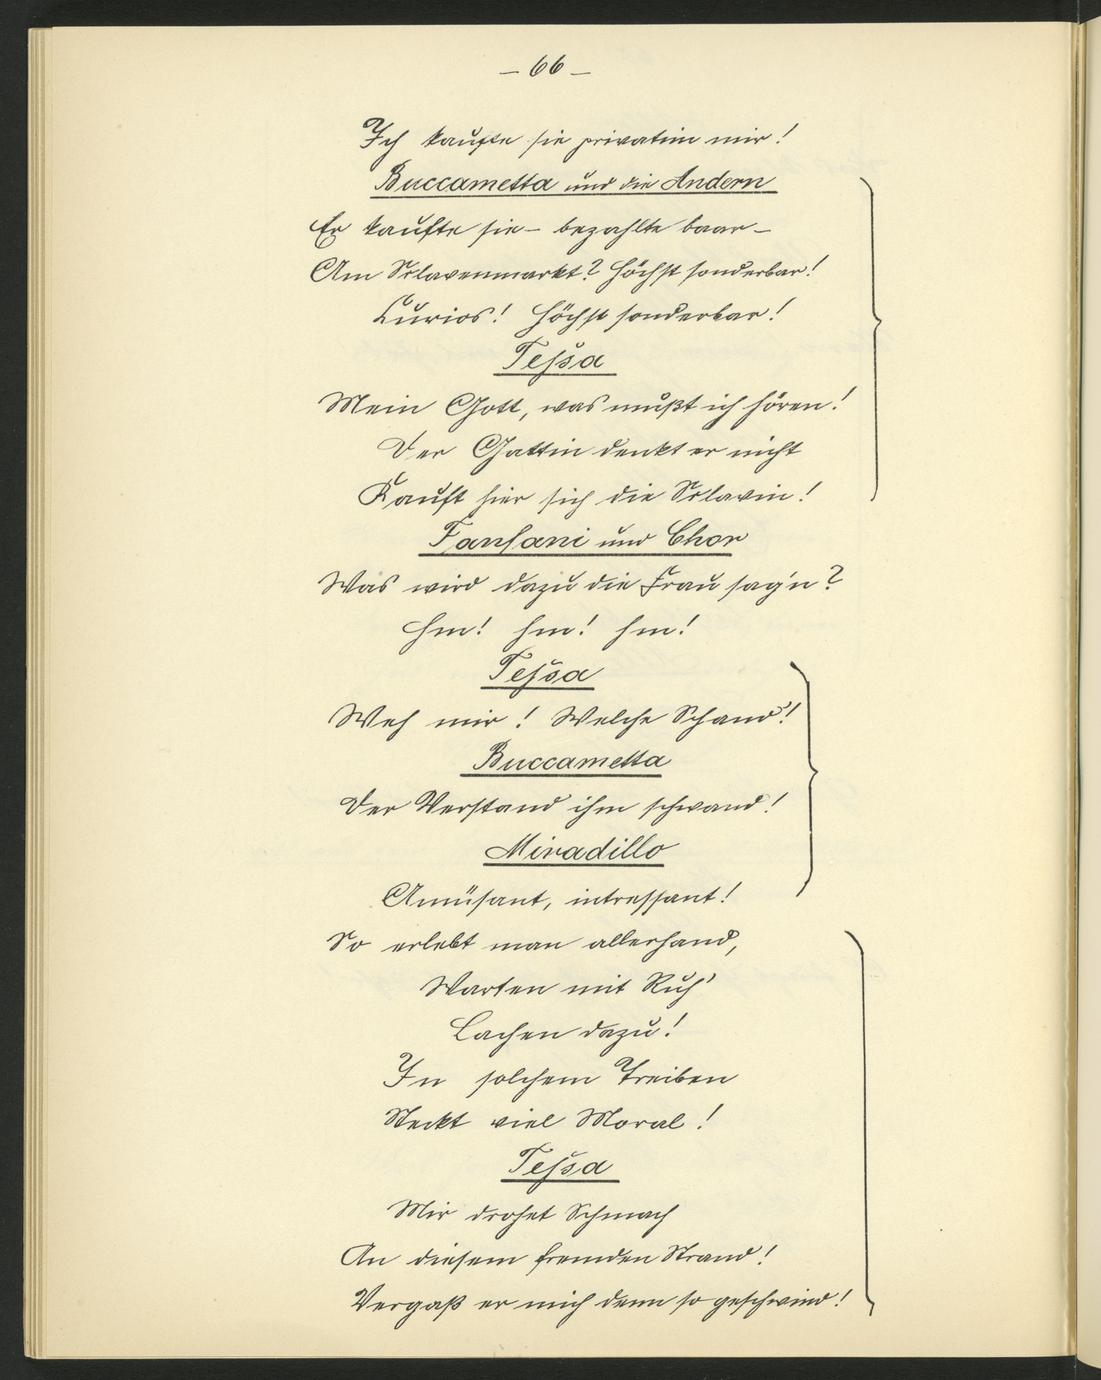 – 66 –
Ich kaufte sie privatim mir!
Buccametta und die Andern
Er kaufte sie – bezahlte baar –
Am Sclavenmarkt? Höchst sonderbar!
Curios! Höchst sonderbar!
Tessa
Mein Gott, was mußt ich hören!
Der Gattin denkt er nicht
Kauft hier sich die Sclavin!
Fanfani und Chor
Was wird dazu die Frau sag'n?
Hm! hm! hm!
Tessa
Weh mir! Welche Schand'!
Buccametta
Der Verstand ihm schwand!
Miradillo
Amüsant, intressant!
So erlebt man allerhand,
Warten mit Ruh'
Lachen dazu!
In solchem Treiben
Steckt viel Moral!
Tessa
Mir drohet Schmach
An diesem fremden Strand!
Vergaß er mich denn so geschwind!